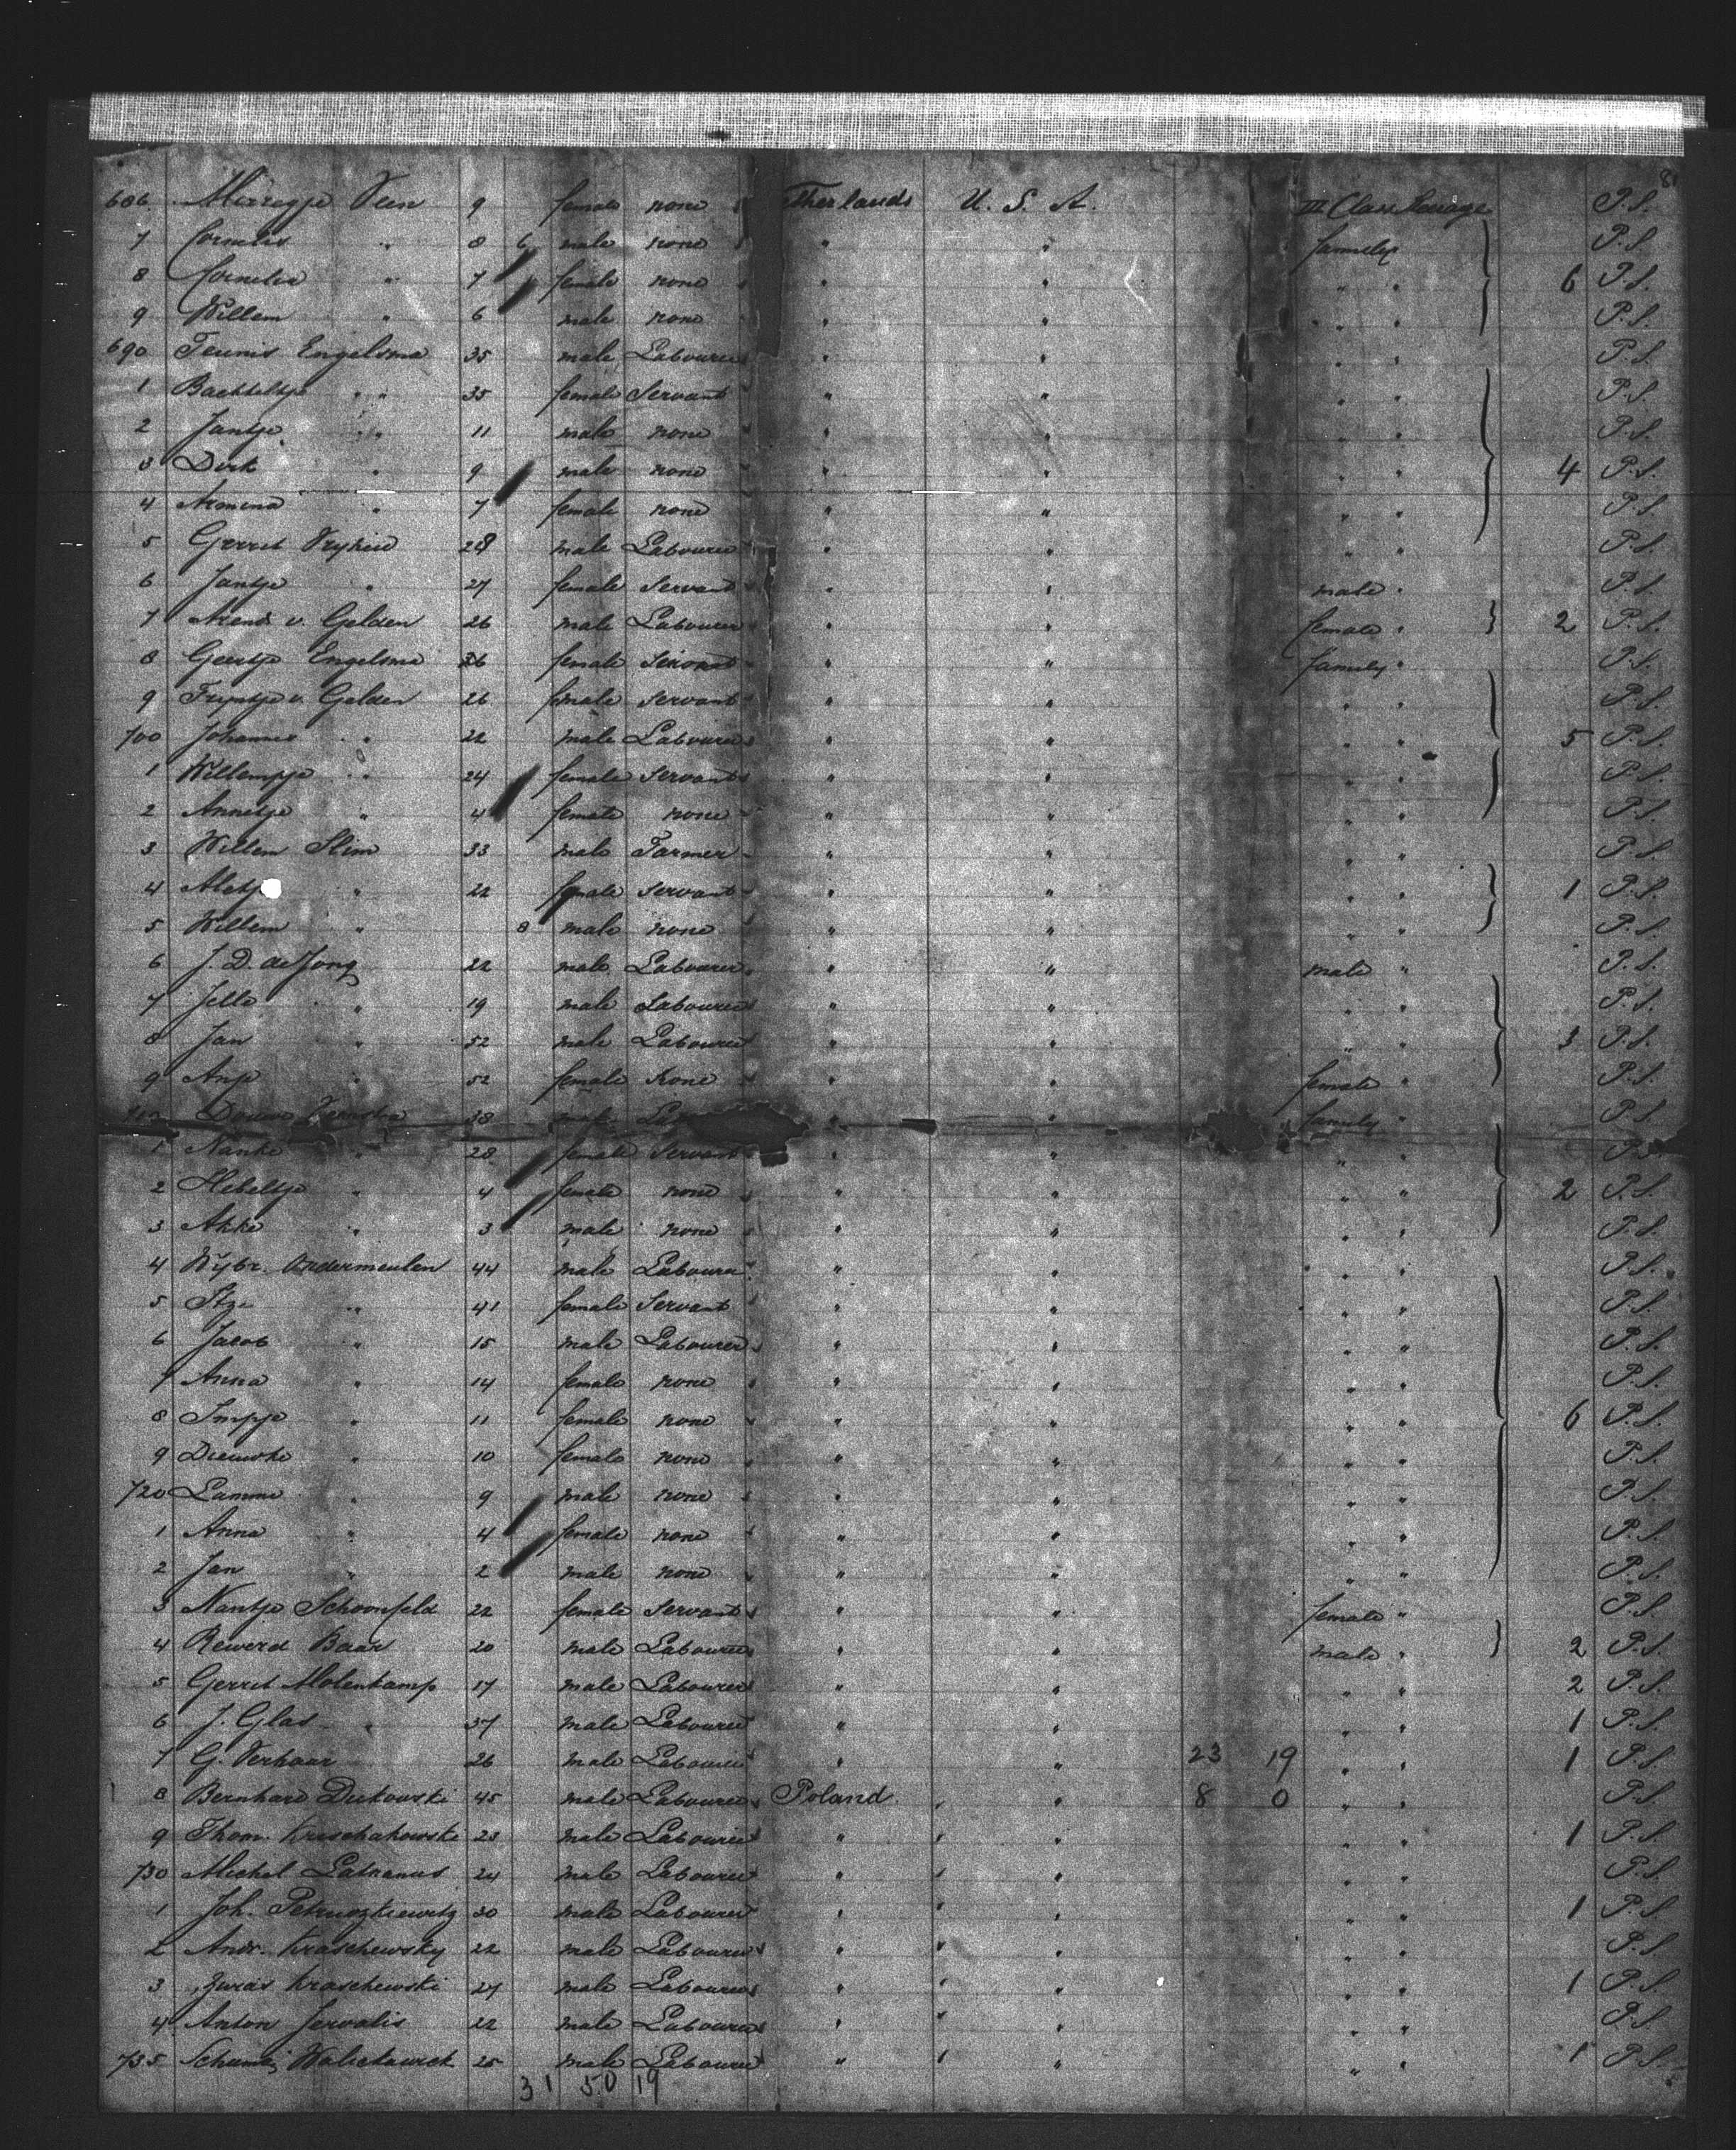 81
686 Marregje Veen 9 female none Therlands U. S. A. III Class Steerage P.S.
7 Cornelis " 8 6 male none " " family P.S.
8 Cornelia " 7 female none " " " " 6 P.S.
9 Willem " 6 male none " " " " P.S.
690 Teunis Engelsma 35 male Labourer " " " " P.S.
1 " " 35 female Servant " " " " P.S.
2 Jantje " 11 male none " " " " P.S.
3 Dirk " 9 male none " " " " 4 P.S.
4 Armina " 7 female none " " " " P.S.
5 Gerrit 28 male Labourer " " " " P.S.
6 Jantje " 27 female Servant " " male " P.S.
7 Arend v. Gelden 26 male Labourer " " female " 2 P.S.
8 Geertje Engelsma 26 female Servant " " family " P.S.
9 Tryntje v. Gelden 26 female Servant " " " " P.S.
700 Johannes " " 22 male Labourer " " " " 5 P.S.
1 Willempje " " 24 female Servant " " " " P.S.
2 Annetje " 4 female none " " " " P.S.
3 Willem Slim 33 male Farmer " " " " P.S.
4 Aletje " 22 female Servant " " " " 1 P.S.
5 Willem " 8 male none " " " " P.S.
6 J. D. de Jong 22 male Labourer " " male " P.S.
7 Jelle " 19 male Labourer " " " " P.S.
8 Jan " 52 male Labourer " " " " 3 P.S.
9 Anje " 52 female None " " female " P.S.
710 Douwe 28 male " " family " P.S.
1 Nanke " 28 female Servant " " " " P.S.
2 Hebeltje " 4 female none " " " " 2 P.S.
3 Akke " 3 male none " " " " P.S.
4 Wybr. Andermeulen 44 male Labourer " " " " P.S.
5 " 41 female Servant " " " " P.S.
6 Jacob " 15 male Labourer " " " " P.S.
7 Anna " 14 female none " " " " P.S.
8 Impje " 11 female none " " " " 6 P.S.
9 Dieuwke " 10 female none " " " " P.S.
720 Lamme " 9 male none " " " " P.S.
1 Anna " 4 female none " " " " P.S.
2 Jan " 2 male none " " " " P.S.
3 Nantje Schoonfeld 22 female Servant " " female " P.S.
4 Rewerd Baar 20 male Labourer " " male " 2 P.S.
5 Gerrit Molenkamp 17 male Labourer " " " " 2 P.S.
6 J. Glas 37 male Labourer " " " " 1 P.S.
7 G. Verhaar 26 male Labourer " " 23 19 " " 1 P.S.
8 Bernhard Dutkowski 45 male Labourer Poland " 8 0 " " P.S.
9 Thom. Krischakowski 23 male Labourer " " " " 1 P.S.
730 Michel Latzanus 24 male Labourer " " " " P.S.
1 Joh. Petruszkiewitz 30 male Labourer " " " " 1 P.S.
2 Andr. Kraschewsky 22 male Labourer " " " " P.S.
3 Juras Kraschewski 27 male Labourer " " " " 1 P.S.
4 Anton Jervalis 22 male Labourer " " " " P.S.
735 Walickawick 25 male Labourer " " " " 1 P.S.
31 50 19